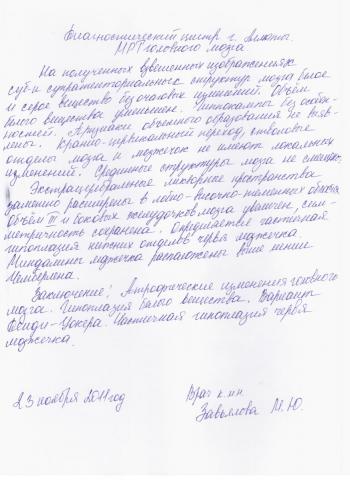 Диагностический центр г. Алматы.
МРТ головного мозга
На полученных взвешенных изображениях
суб- и супратенториальных структур мозга белое
и серое вещество без очаговых изменений. Объём
белого вещества уменьшен. Гиппокампы без особен-
ностей. Признаки объемного образования не выяв-
лены. Кранио-цервикальный переход, стволовые
отделы мозга и мозжечок не имеют локальных
изменений. Срединные структуры мозга не смещены.
Экстрацеребральное ликворное пространства
заметно расширены в лобно-височно-теменных областях
Объём III и боковых желудочков мозга увеличен, сим-
метричность сохранена. Определяется частичная
гипоплазия нижних отделов червя мозжечка.
Миндалины мозжечка расположены выше линии
Чемберлена.
Заключение: Атрофические изменения головного
мозга. Гипоплазия белого вещества. Варианты
Денди-Уокера. Частичная гипоплазия червя
мозжечка.
23 ноября 2011 год
Врач к.м.н.
Завьялова М.Ю.